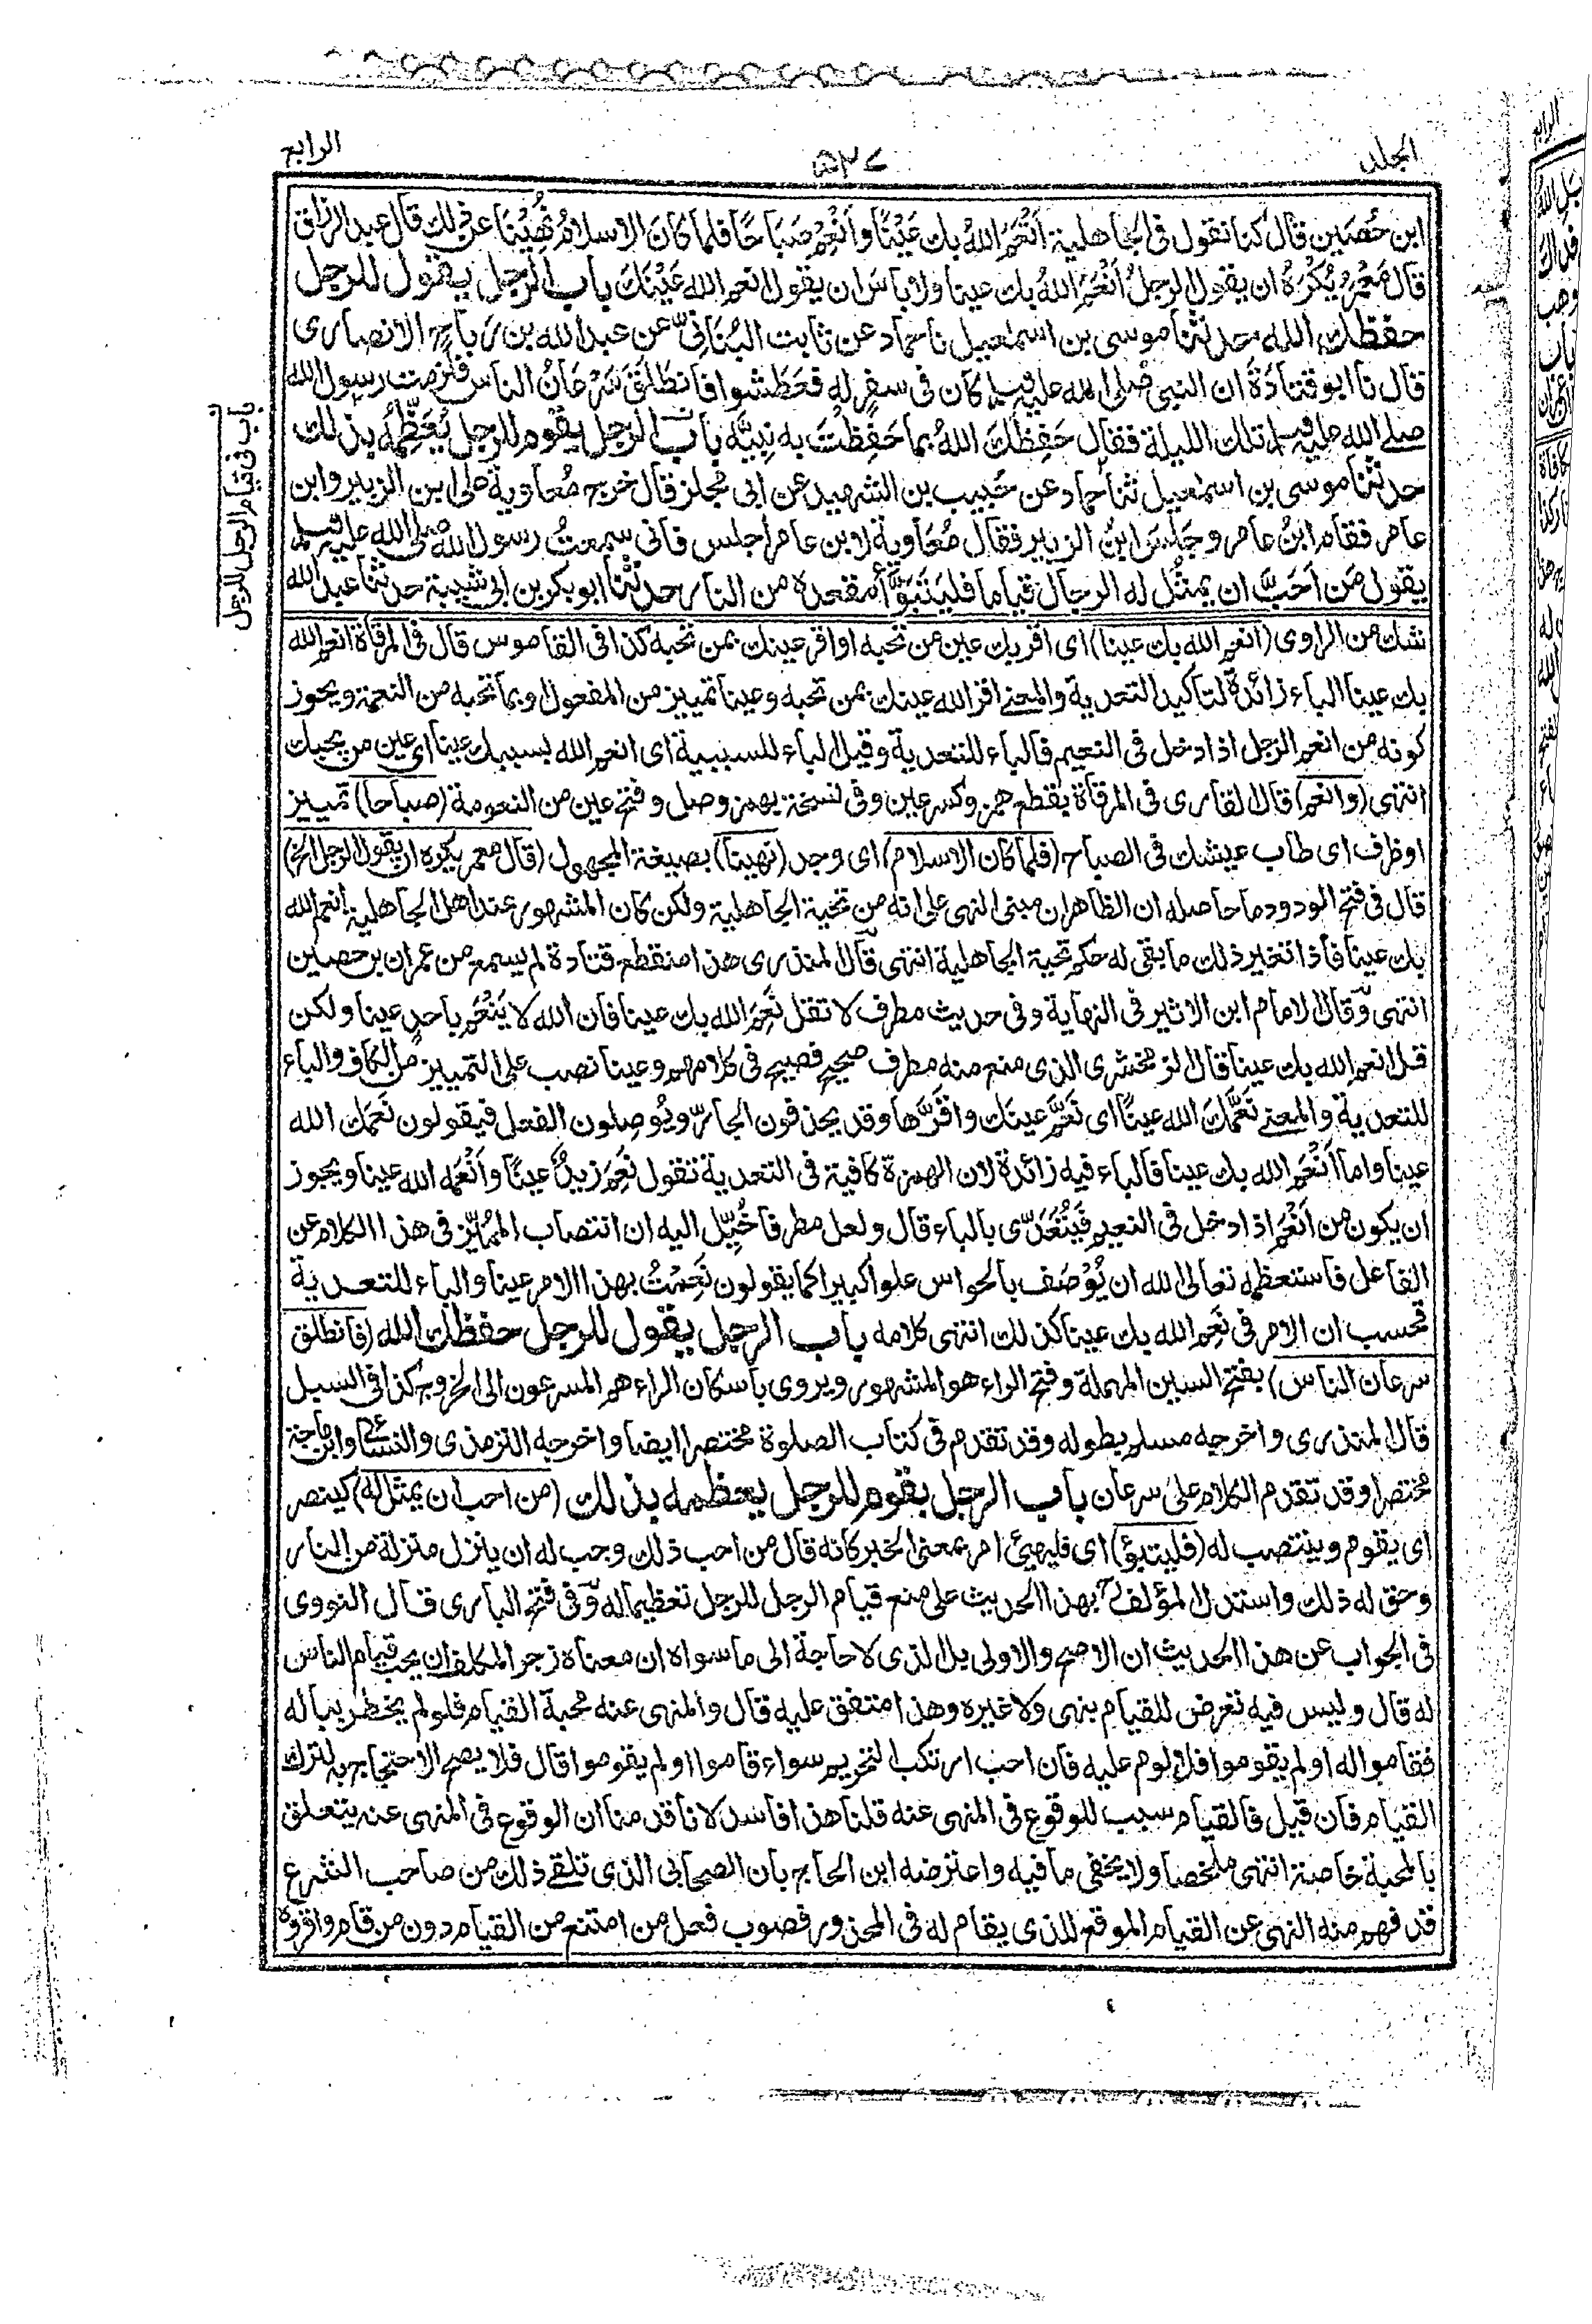 الجلد
٥٢٧
الرابع
ابن حُصَين قال كنا نقول فى الجاهلية أَنْعَمَ اللهُ بك عَيْنًا وأَنْعِم صَبَاحًا فلما كان الاسلامُ نُهِيْنَا عن ذلك قال عبد الرزاق
قال مَعْمَرٌ يُكْرَهُ ان يقول الرجلُ أَنْعَمَ اللهُ بك عينا ولا باس ان يقول انعم الله عَيْنَكَ باب الرجل يقول للرجل
حفظك الله حدثنا موسى بن اسمعيل نا حماد عن ثابت البُنَانِىِّ عن عبد الله بن رَبَاحٍ الانصارى
قال نا ابو قتادَةَ ان النبى صلى الله عليه وسلم كان فى سفرٍ له فعَطَشوا فانطلَقَ سَرْعَانُ الناس فلزمت رسول الله
صلى الله عليه وسلم تلك الليلة فقال حَفِظَكَ اللهُ بما حَفِظْتَ به نبيَّه باب الرجل يقوم للرجل يُعَظِّمُه بذلك
حدثنا موسى بن اسمعيل ثنا حماد عن حَبيب بن الشهيد عن ابى مجلز قال خرج مُعاوية على ابن الزبير وابن
عامر فقام ابنُ عامر وجَلَسَ ابنُ الزبير فقال مُعَاويةُ لابن عامر اجلس فانى سمعتُ رسول الله صلى الله عليه وسلم
يقول مَن اَحَبَّ ان يمثُل له الرجال قياما فليَتَبَوَّأ مقعده من النار حدثنا ابو بكر بن ابى شيبة حدثنا عبد الله
باب فى قيام الرجل للرجل
شك من الراوى (انعم الله بك عينا) اى اقر بك عين من تحبه او اقر عينك بمن تحبه كذا فى القاموس قال فى المرقاة انعم الله
بك عينا الباء زائدة لتاكيد التعدية والمعنى اقر الله عينك بمن تحبه وعينا تمييز من المفعول او بما تحبه من النعمة ويجوز
كونه من انعم الرجل اذا دخل فى النعيم فالباء للتعدية وقيل الباء للسببية اى انعم الله بسببك عينا اى عين من يحبك
انتهى (وانعم) قال القارى فى المرقاة بقطع همز وكسر عين وفى نسخة بهمز وصل وفتح عين من النعومة (صباحا) تمييز
او ظرف اى طاب عيشك فى الصباح (فلما كان الاسلام) اى وجد (نهينا) بصيغة المجهول (قال معمر يكره ان يقول الرجل الخ)
قال فى فتح الودود ما حاصله ان الظاهر ان مبنى النهى على انه من تحية الجاهلية ولكن كان المشهور عند اهل الجاهلية انعم الله
بك عينا فاذا تغير ذلك ما بقى له حكم تحية الجاهلية انتهى قال المنذرى هذا منقطع قتادة لم يسمع من عمران بن حصين
انتهى وقال الامام ابن الاثير فى النهاية وفى حديث مطرف لا تقل نَعِمَ الله بك عينا فان الله لا يَنْعَم باحدٍ عينا ولكن
قل انعم الله بك عينا قال الزمخشرى الذى منع منه مطرف صحيح فصيح فى كلامهم وعينا نصب على التمييز من الكاف والباء
للتعدية والمعنى نَعَّمَكَ الله عينًا اى نَعَّم عينَك واقَرَّها وقد يحذفون الجارّ ويُوصِلون الفعل فيقولون نَعِمَك الله
عينا واما أَنْعَم الله بك عينا فالباء فيه زائدة لان الهمزة كافية فى التعدية تقول نَعِمَ زيدٌ عينًا وأَنْعَمه الله عينا ويجوز
ان يكون من أَنْعَمَ اذا دخل فى النعيم فيُتعَدّى بالباء قال ولعل مطرفا خُيِّل اليه ان انتصاب المُمَيّز فى هذا الكلام عن
الفاعل فاستعظمه تعالى الله ان يُوْصَف بالحواس علوا كبيرا كما يقولون نَعِمْتُ بهذا الامر عينا والباء للتعدية
فحسب ان الامر فى نَعِم الله بك عينا كذلك انتهى كلامه باب الرجل يقول للرجل حفظك الله (فانطلق
سرعان الناس) بفتح السين المهملة وفتح الراء هو المشهور ويروى باسكان الراء هم المسرعون الى الخروج كذا فى السبل
قال المنذرى واخرجه مسلم بطوله وقد تقدم فى كتاب الصلوة مختصرا ايضا واخرجه الترمذى والنسائى وابن ماجة
مختصرا وقد تقدم الكلام على سرعان باب الرجل يقوم للرجل يعظمه بذلك (من احب ان يمثل له) كينصر
اى يقوم وينتصب له (فليتبؤ) اى فليهيئ امر بمعنى الخبر كانه قال من احب ذلك وجب له ان ينزل منزلة من النار
وحق له ذلك واستدل المؤلف بهذا الحديث على منع قيام الرجل للرجل تعظيما له وفى فتح البارى قال النووى
فى الجواب عن هذا الحديث ان الاصح والاولى بل الذى لا حاجة الى ما سواه ان معناه زجر المكلف ان يحب قيام الناس
له قال وليس فيه تعرض للقيام بنهى ولا غيره وهذا متفق عليه قال والمنهى عنه محبة القيام فلو لم يخطر بباله
فقاموا له او لم يقوموا فلا لوم عليه فان احب ارتكب التحريم سواء قاموا او لم يقوموا قال فلا يصح الاحتجاج به لترك
القيام فان قيل فالقيام سبب للوقوع فى المنهى عنه قلنا هذا فاسد لانا قدمنا ان الوقوع فى المنهى عنه يتعلق
بالمحبة خاصة انتهى ملخصا ولا يخفى ما فيه واعترضه ابن الحاج بان الصحابى الذى تلقى ذلك من صاحب الشرع
قد فهم منه النهى عن القيام الموقع للذى يقام له فى المحذور فصوب فعل من امتنع من القيام دون من قام واقروه